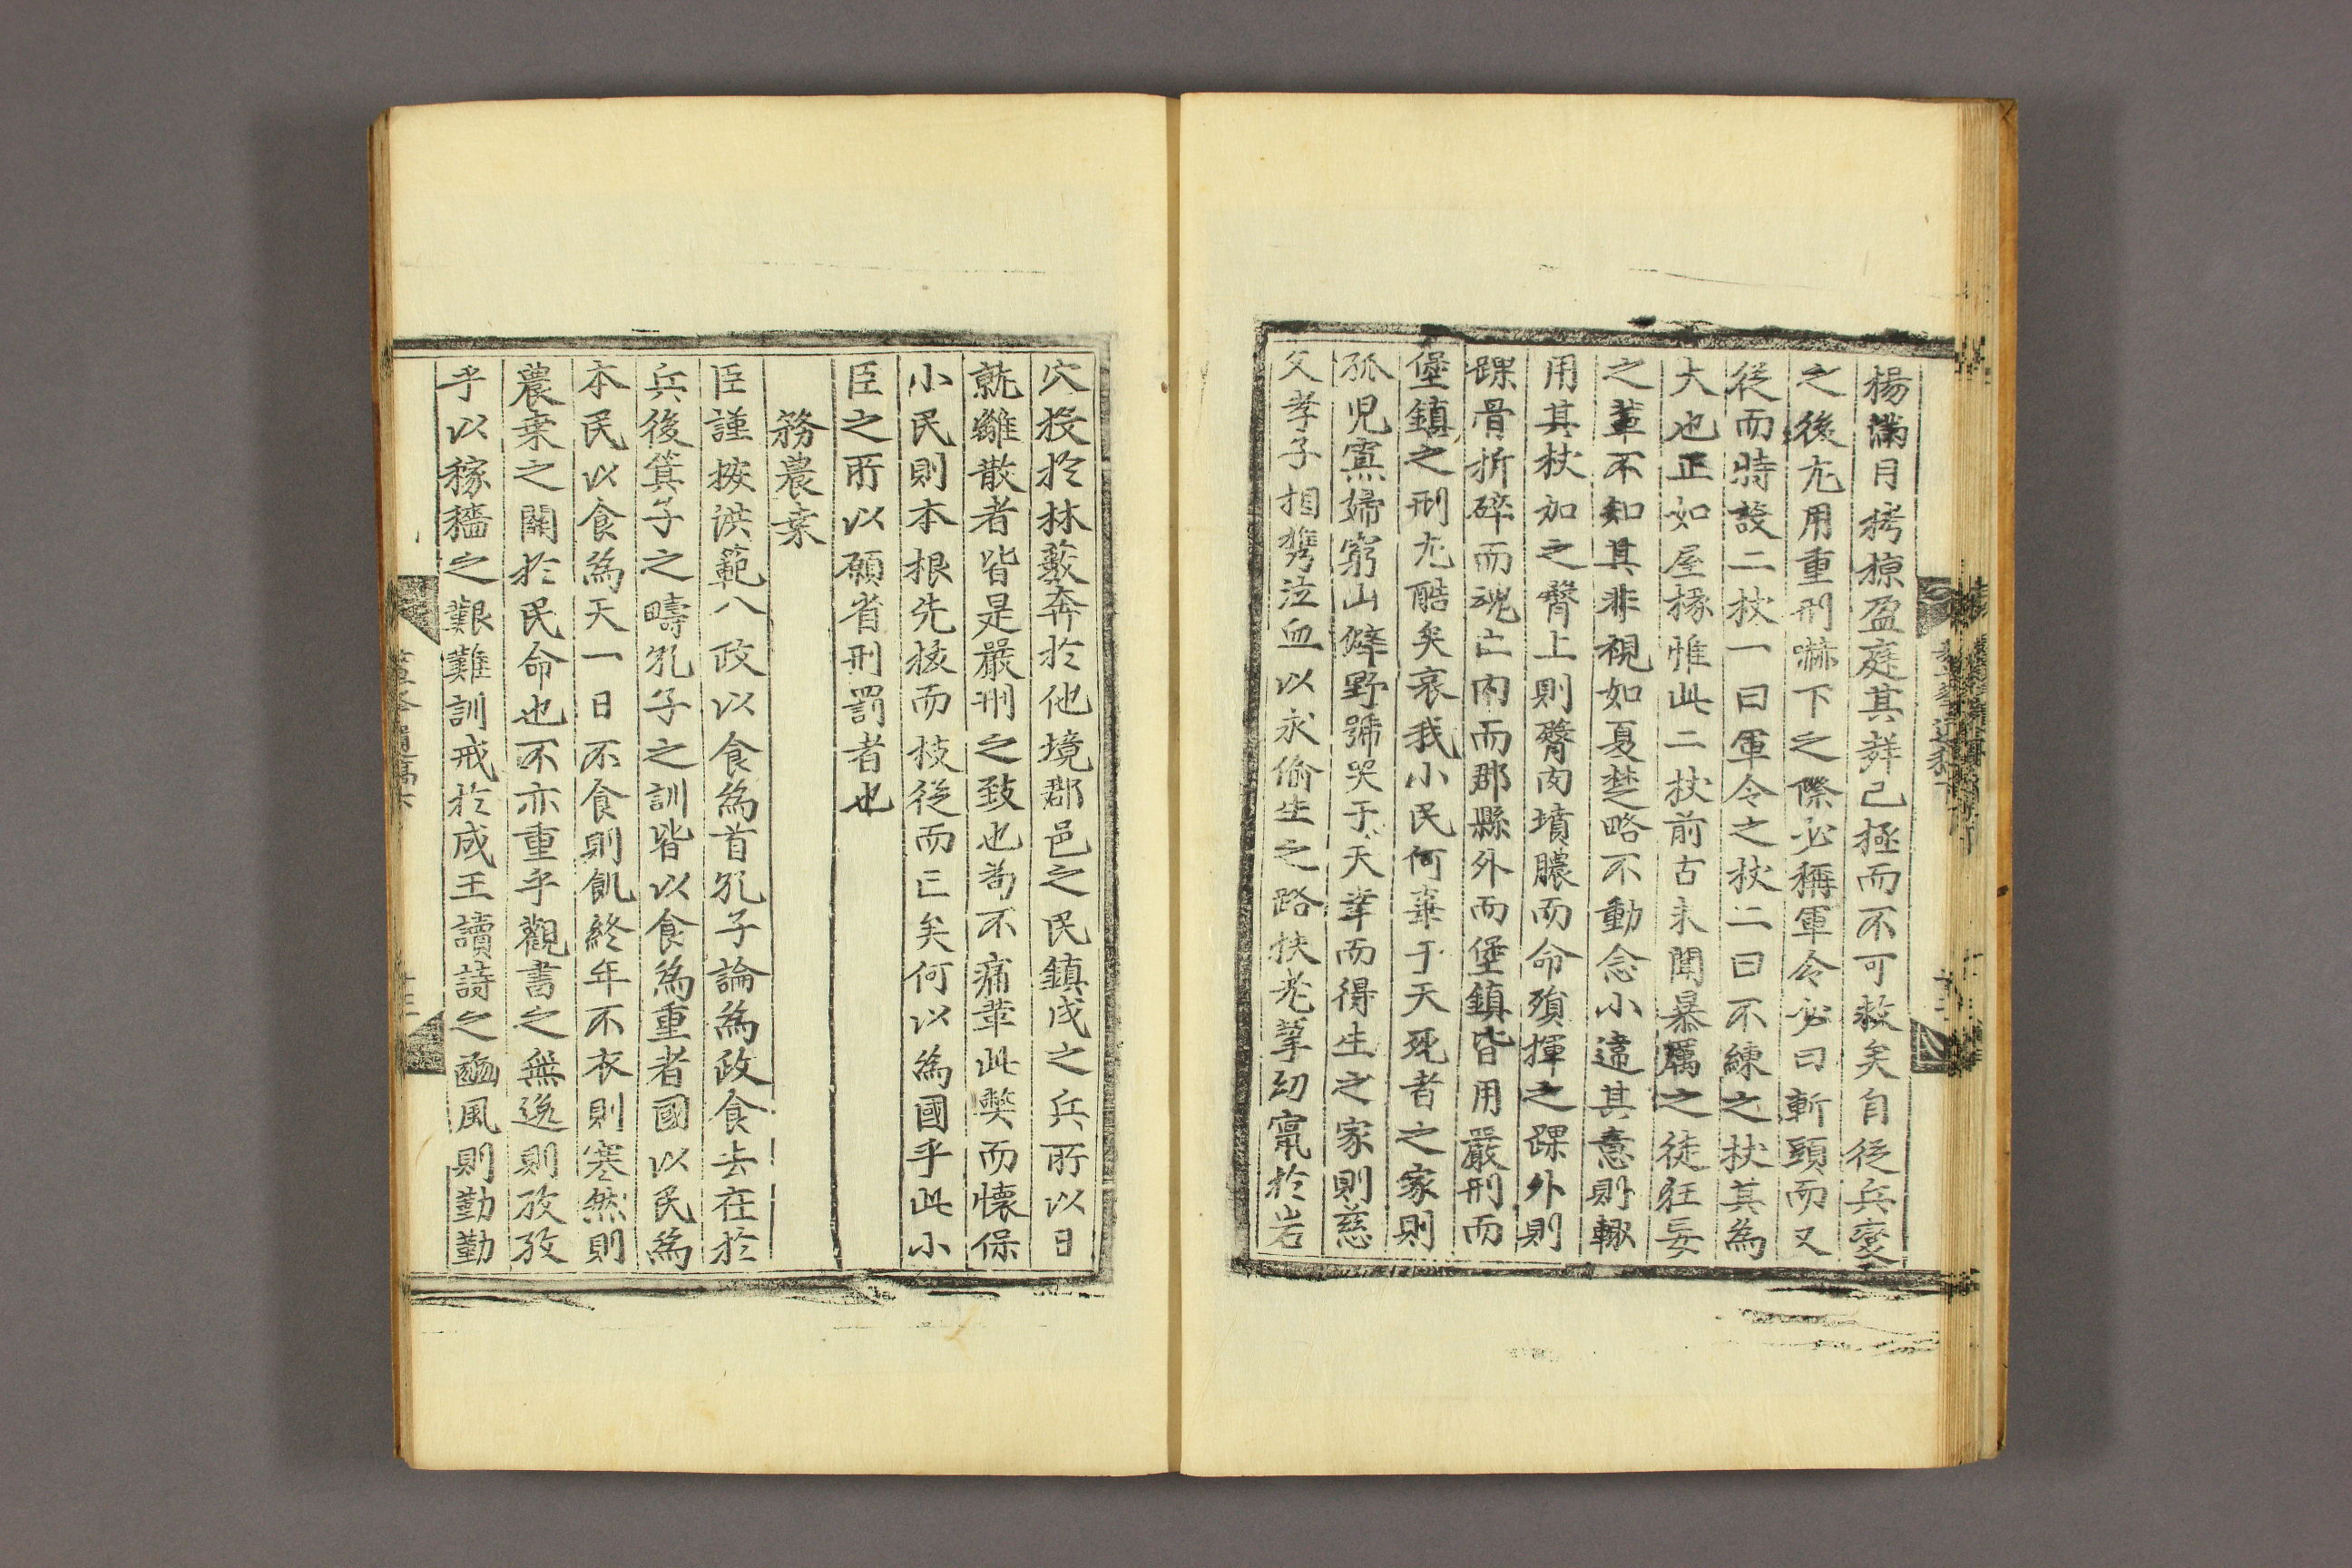 楊滿月栲掠盈庭其弊已極而不可救矣自從兵變
之後尤用重刑嚇下之際必稱軍令必曰斬頭而又
從而特設二杖一曰軍令之杖二曰不練之杖其爲
大也正如屋椽惟此二杖前古未聞暴厲之徒狂妄
之輩不知其非視如夏楚略不動念小違其意則輙
用其杖加之臀上則臀肉墳膿而命殞揮之踝外則
踝骨折碎而魂亡內而郡縣外而堡鎮皆用嚴刑而
堡鎮之刑尤酷矣哀我小民何辜于天死者之家則
孤兒寡婦窮山僻野號哭于天幸而得生之家則慈
父孝子相携泣血以求偷生之路扶老挈幼竄於岩
穴投於林藪奔於他境郡邑之民鎮戍之兵所以日
就離散者皆是嚴刑之致也苟不痛革此獘而懷保
小民則本根先拔而枝從而亡矣何以爲國乎此小
臣之所以願省刑罰者也
務農桒
臣謹按洪範八政以食爲首孔子論爲政食去在於
兵後箕子之疇孔子之訓皆以食爲重者國以民爲
本民以食爲天一日不食則飢終年不衣則寒然則
農桒之關於民命也不亦重乎觀書之無逸則孜孜
乎以稼穡之艱難訓戒於成王讀詩之豳風則勤勤